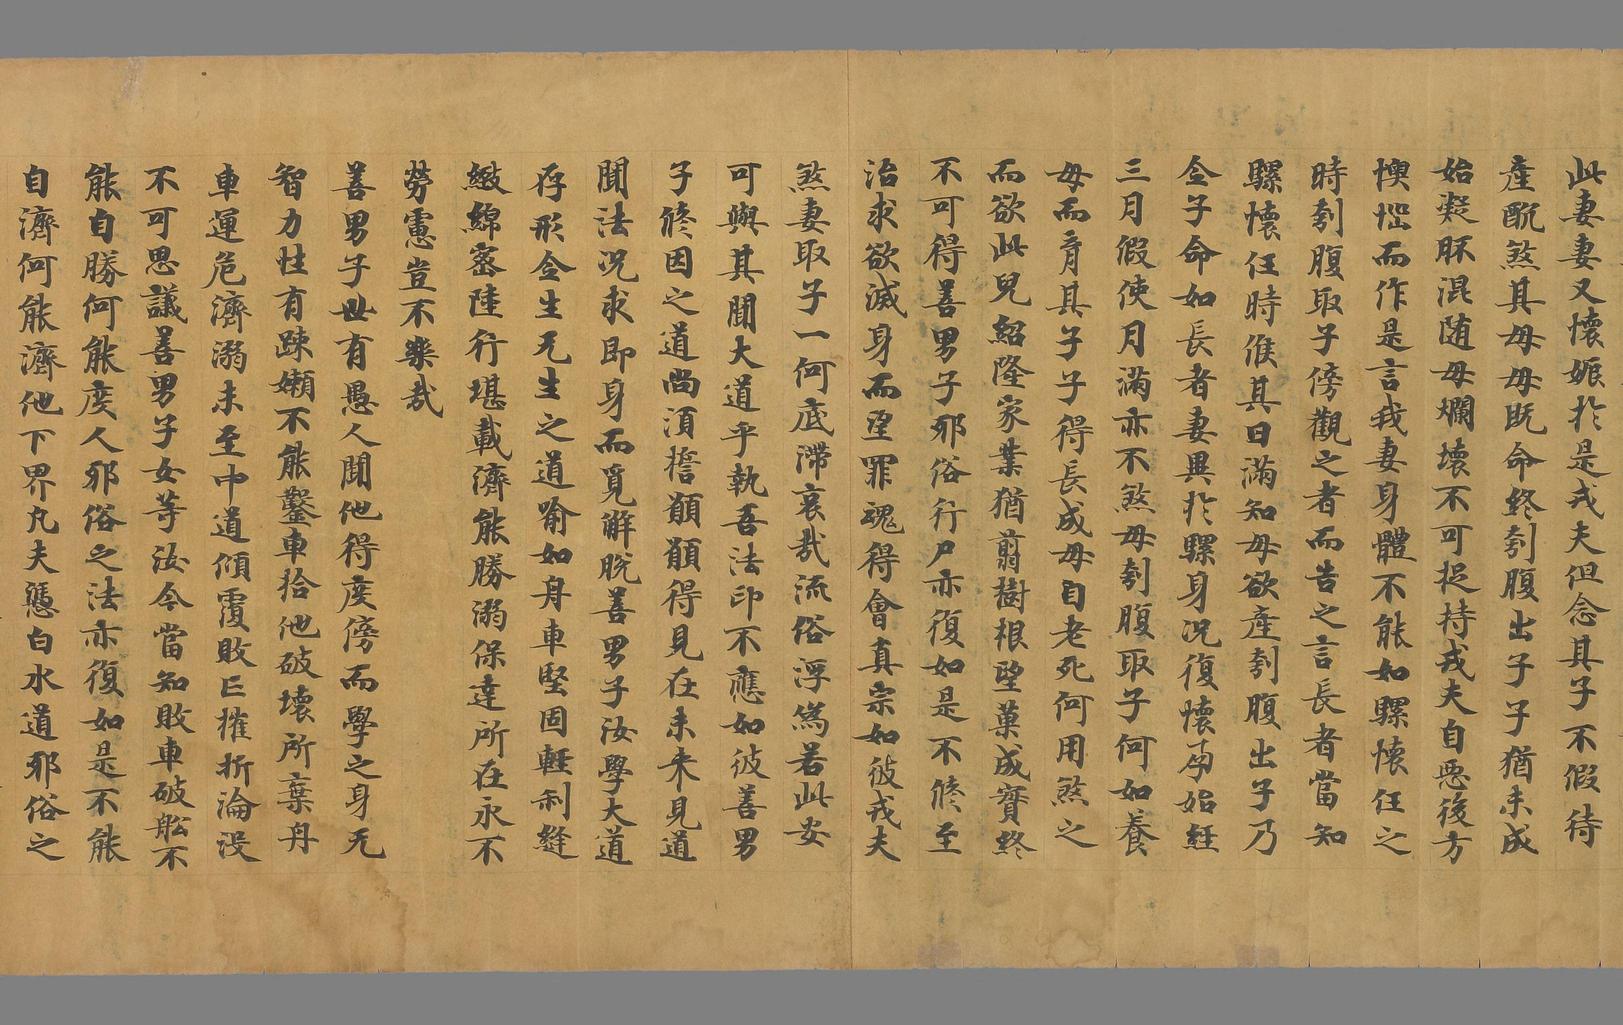 此妻妻又懷娠於是戎夫但念其子不假待
產䣺煞其母母既命終刳腹出子子猶未成
始凝胚混随母爛壞不可捉持戎夫自惡後方
懊惱而作是言我妻身體不能如騾懷任之
時刳腹取子傍觀之者而告之言長者當知
騾懷任時候其日滿知母欲產刳腹出子乃
全子命如長者妻異於騾身況復懷孕始経
三月假使月滿亦不煞母刳腹取子何如養
母而育其子子得長成母自老死何用煞之
而欲此兒紹隆家業猶翦樹根望菓成實終
不可得善男子邪俗行尸亦復如是不脩至
治求欲滅身而望罪魂得會真宗如彼戎夫
煞妻取子一何底滯哀哉流俗浮爲若此安
可與其聞大道乎執吾法印不應如彼善男
子脩因之道尚須擔顛顛得見在未来見道
聞法況求即身而覓解脫善男子汝學大道
存形全生无生之道喻如舟車堅固輊利縫
緻綿密陸行堪載濟能勝溺保達所在永不
勞慮豈不樂哉
善男子世有愚人聞他得度傍而學之身无
智力性有踈嬾不能鑿車拾他破壞所棄舟
車運危濟溺未至中道傾覆敗亡摧折淪没
不可思議善男子女等汝今當知敗車破舩不
能自勝何能度人邪俗之法亦復如是不能
自濟何能濟他下界凡夫憑白水道邪俗之